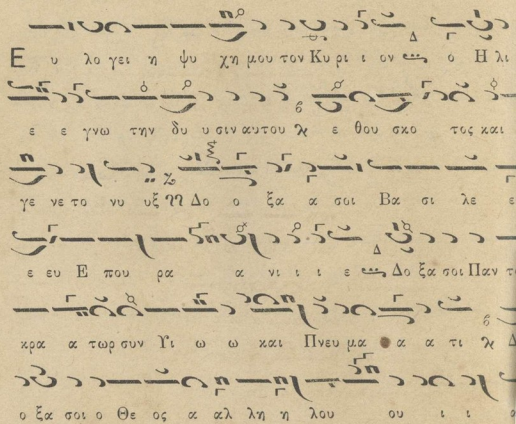 Ε υ λο γει η ψυ χη μου τον Κυ ρι ι ον ο Η λι
ε ε γνω την δυ υ σιν αυτου ε θου σκο τος και
γε νε το νυ υξ Δο ο ξα α σοι Βα σι λε ε
ε ευ Ε που ρα α νι ι ι ε Δο ξα σοι Παν το
κρα α τωρ συν Υι ω ω και Πνευ μα α α τι
ο ξα σοι ο Θε ος α αλ λη η λου ου ι ι